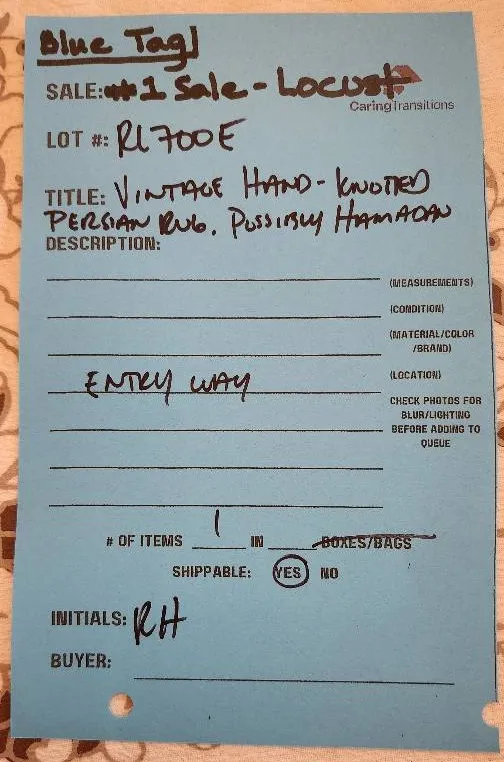 Blue Tag
SALE: #1 Sale - Locust
CaringTransitions
LOT #: RL700E
TITLE: VINTAGE HAND-KNOTTED
PERSIAN RUG. POSSIBLY HAMADAN
DESCRIPTION:
(MEASUREMENTS)
(CONDITION)
(MATERIAL/COLOR
/BRAND)
ENTRY WAY (LOCATION)
CHECK PHOTOS FOR
BLUR/LIGHTING
BEFORE ADDING TO
QUEUE
# OF ITEMS 1 IN BOXES/BAGS
SHIPPABLE: YES NO
INITIALS: RH
BUYER: